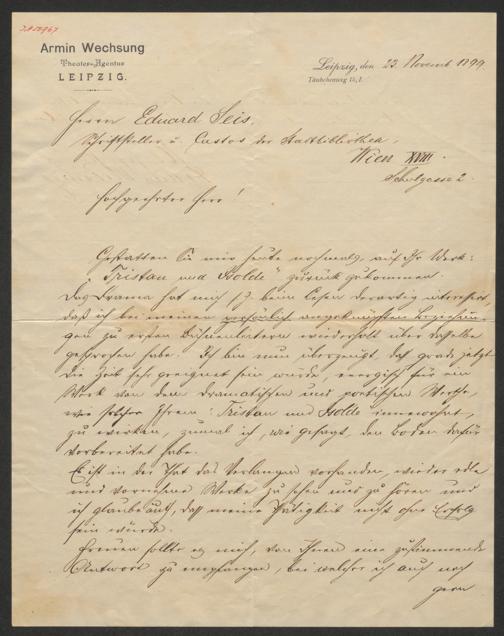 Armin Wechsung
Theater-Agentur
LEIPZIG.
Leipzig, den 23. Novemb 1899
Täubchenweg 15, I.
Herrn Eduard Seis,
Schriftsteller u. Custos der Stadtbibliothek,
Wien XVIII
Schulgasse 2.
Hochgeehrter Herr!
Gestatten Sie mir heute nochmals, auf Ihr Werk:
"Tristan und Isolde" zurück zukommen.
Das Drama hat mich s. Z. beim Lesen derartig interessirt,
daß ich bei meinen persönlich angeknüpften Beziehun-
gen zu ersten Bühnenleitern wiederholt über dasselbe
gesprochen habe. Ich bin nun überzeugt, daß grade jetzt
die Zeit sehr geeignet sein würde, energisch für ein
Werk von dem dramatischen und poetischen Werthe,
wie solcher Ihrem: Tristan und Isolde innewohnt,
zu wirken, zumal ich, wie gesagt, den Boden dafür
vorbereitet habe.
Es ist in der That das Verlangen vorhanden, wieder edle
und vornehme Werke zu sehen und zu hören und
ich glaube auch, daß meine Thätigkeit nicht ohne Erfolg
sein würde.
Freuen sollte es mich, von Ihnen eine zustimmende
Antwort zu empfangen, bei welcher ich auch noch
gern